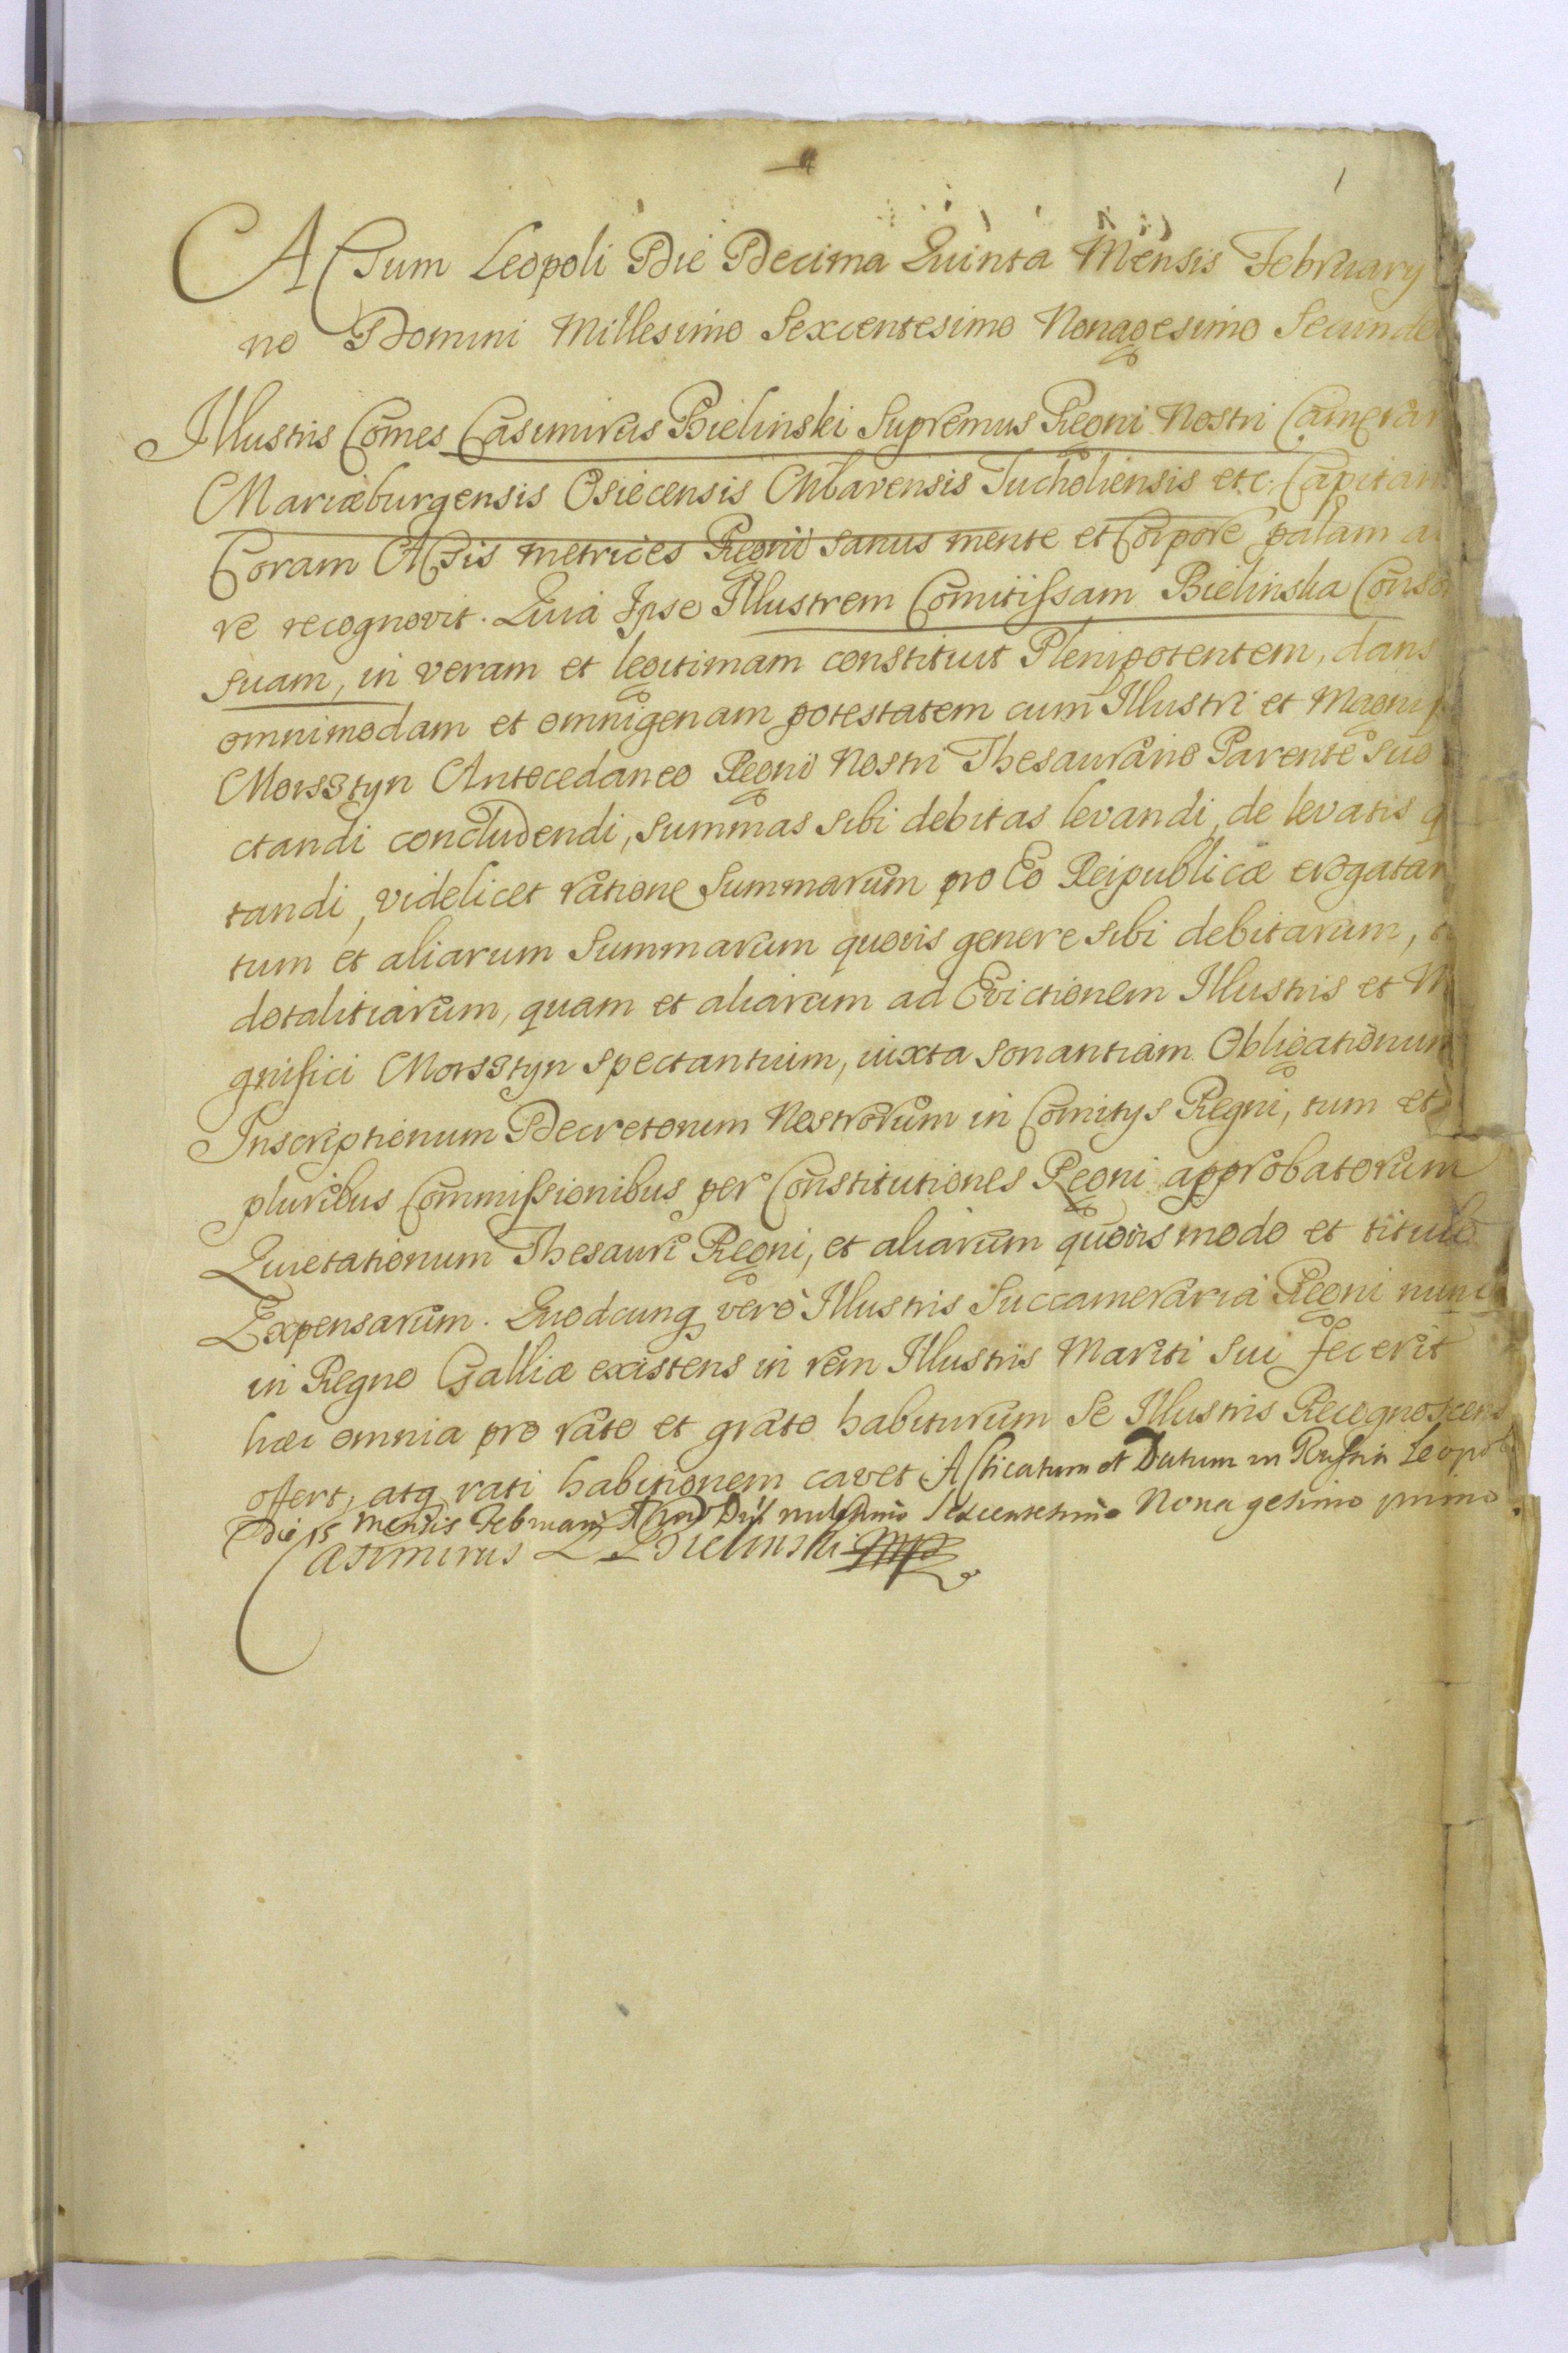 1
Actum Leopoli Die Decima Quinta Mensis February
no Domini Millesimo Sexcentesimo Nonagesimo Secundo
Illustris Comes Casimirus Bielinski Supremus Regni Nostri Camerar
Mariæburgensis Osiecensis Tucholiensis etc. Capitan
Coram Actis metrices Regni sanus mente et Corpore palam a
re recognovit. Quia Ipse Illustrem Comitissam Bielinska Conso
suam, in veram et legitimam constituit Plenipotentem, dans
omnimodam et omnigenam potestatem cum Illustri et Magnif
Morsztyn Antecedaneo Regni Nostri Thesaurario Parente suo
ctandi concludendi, summas sibi debitas levandi, de levatis q
tandi, videlicet ratione Summarum pro Eo Reipublicæ erogatar
tum et aliarum Summarum quovis genere sibi debitarum, t
dotalitiarum, quam et aliarum ad Evictionem Illustris et M
gnifici Morsztyn spectantium, iuxta sonantiam Obligationum
Inscriptionum Decretorum Nostrorum in Comitys Regni, tum et
pluribus Commissionibus per Constitutiones Regni approbatorum
Quietationum Thesauri Regni, et aliarum quovis modo et titulo
Expensarum. Quodcunq vero Illustris Succameraria Regni nunc
in Regno Galliæ existens in rem Illustris Mariti sui fecerit
hæc omnia pro rato et grato habiturum se Illustris Recognoscens
offert, atq rati habitionem cavet Acticatum et Datum in Russia Leopoli
Die 15 Mensis Februarii Anno Dni millesimo Sexcentesimo Nonagesimo primo.
Casimirus Bielinski mp